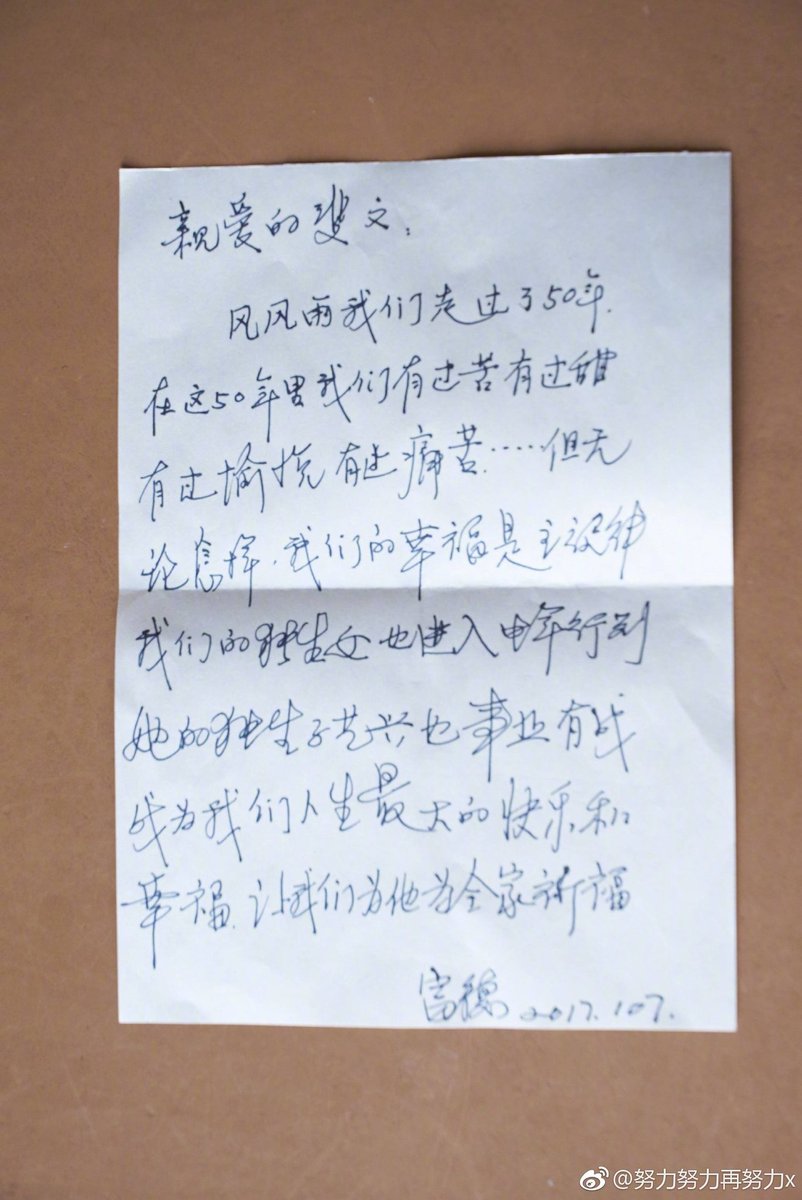 亲爱的斐文:
风风雨我们走过了50年.
在这50年里我们有过苦有过甜
有过愉悦有过痛苦……但无
论怎样.我们的幸福是主旋律
我们的独生女也进入中年行列
她的独生子艺兴也事业有成
成为我们人生最大的快乐和
幸福.让我们为他为全家祈福
富德 2017.107.
@努力努力再努力x